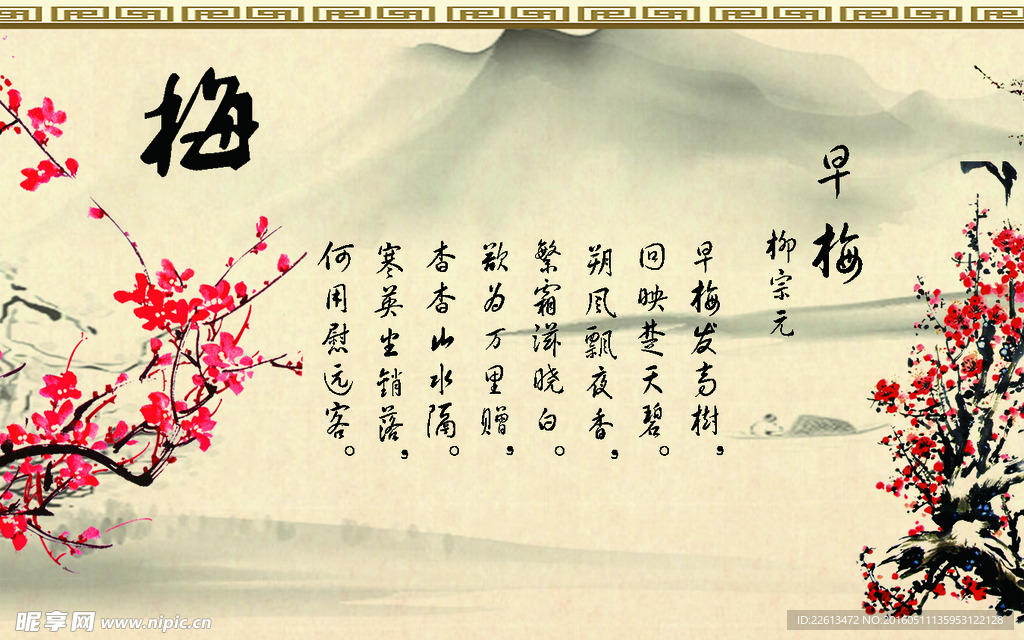 梅
早梅
柳宗元
早梅发高樹，
回映楚天碧。
朔风飘夜香，
繁霜滋晓白。
欲为万里赠，
杳杳山水隔。
寒英坐銷落，
何用慰远客。
昵享网 www.nipic.cn
ID:22613472 NO:20160511135953122128